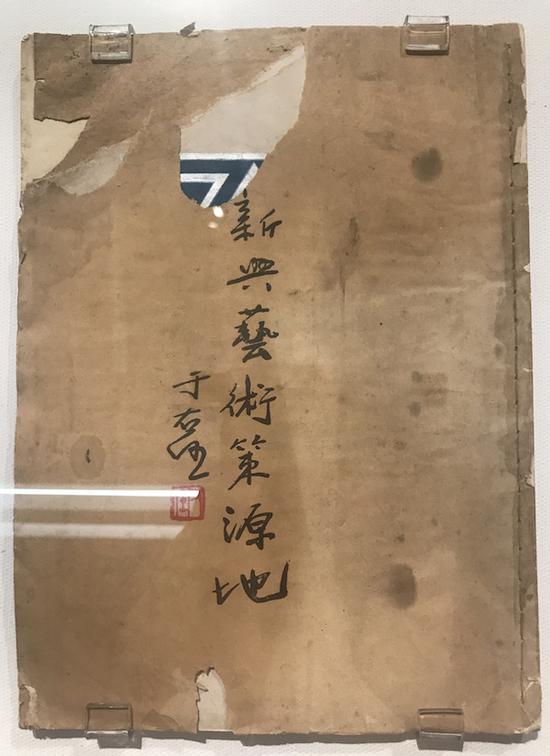 新興藝術策源地
于右任